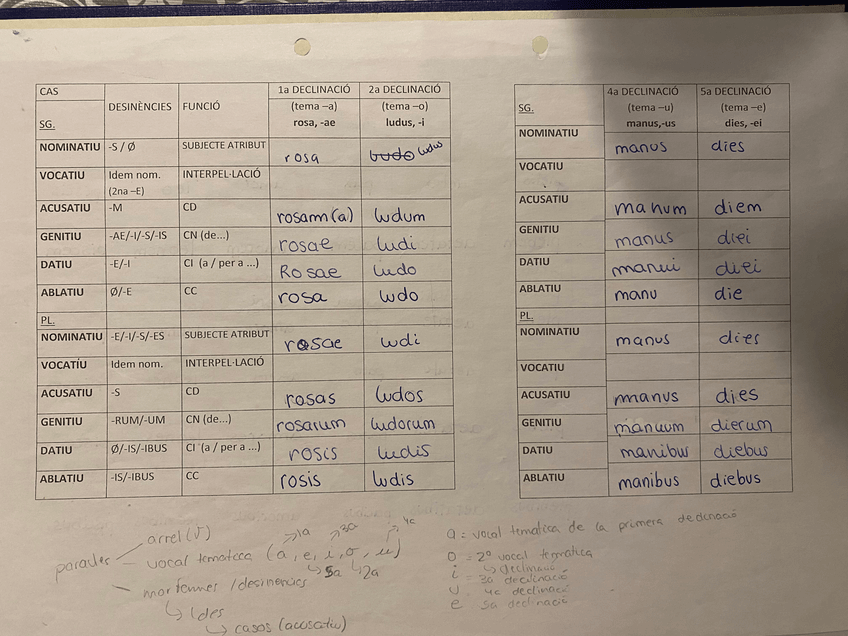 CAS DESINÈNCIES FUNCIÓ 1a DECLINACIÓ (tema –a) rosa, -ae 2a DECLINACIÓ (tema –o) ludus, -i
SG.
NOMINATIU -S / Ø SUBJECTE ATRIBUT rosa ludo ludus
VOCATIU Idem nom. (2na –E) INTERPEL·LACIÓ
ACUSATIU -M CD rosam(a) ludum
GENITIU -AE/-I/-S/-IS CN (de...) rosae ludi
DATIU -E/-I CI (a / per a ...) Rosae ludo
ABLATIU Ø/-E CC rosa ludo
PL.
NOMINATIU -E/-I/-S/-ES SUBJECTE ATRIBUT rosae ludi
VOCATÍU Idem nom. INTERPEL·LACIÓ
ACUSATIU -S CD rosas ludos
GENITIU -RUM/-UM CN (de...) rosarum ludorum
DATIU Ø/-IS/-IBUS CI (a / per a ...) rosis ludis
ABLATIU -IS/-IBUS CC rosis ludis
SG. 4a DECLINACIÓ (tema –u) manus,-us 5a DECLINACIÓ (tema –e) dies, -ei
NOMINATIU manus dies
VOCATIU
ACUSATIU manum diem
GENITIU manus diei
DATIU manui diei
ABLATIU manu die
PL.
NOMINATIU manus dies
VOCATIU
ACUSATIU manus dies
GENITIU manuum dierum
DATIU manibus diebus
ABLATIU manibus diebus
arrel (√) 1a 3a 4a
paraules vocal temàtica (a, e, i, o, u)
5a 2a
morfemes / desinències
casos (acusatiu)
a = vocal temàtica de la primera declinació
o = 2º vocal temàtica
declinació
i = 3a declinació
u 4a declinació
e 5a declinació